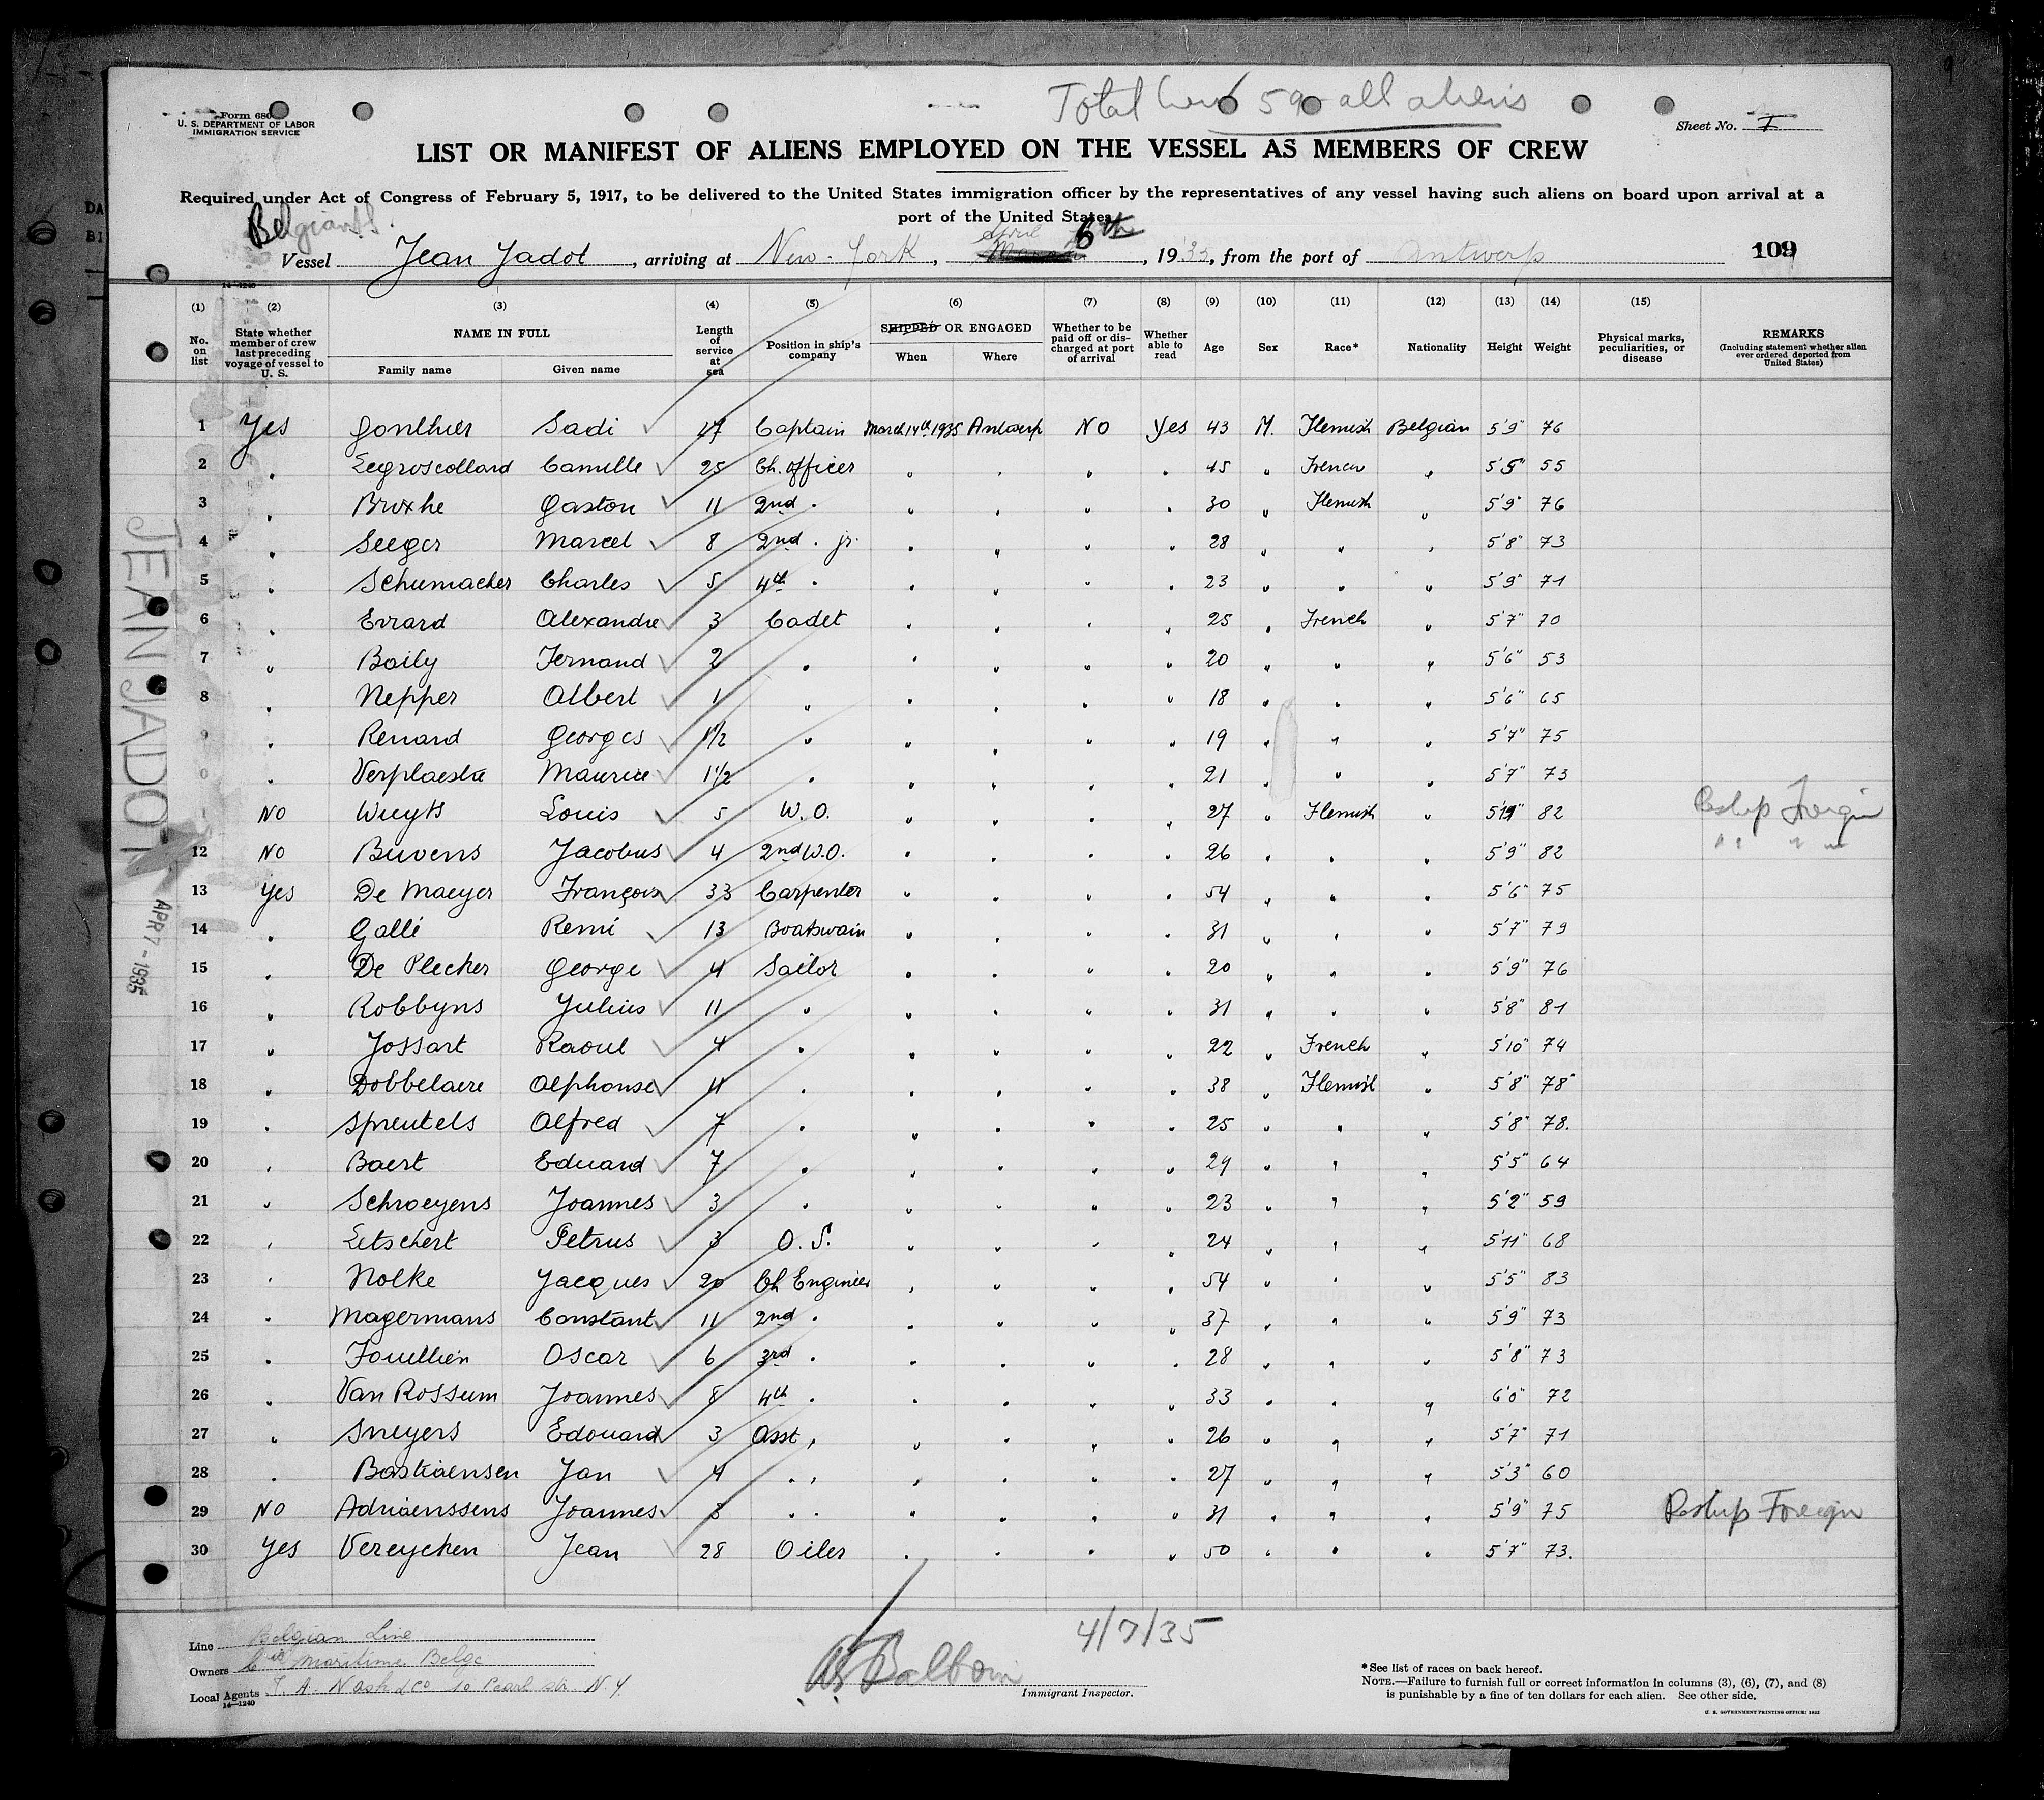 Total Crew 59 - all aliens
Form 680
U. S. DEPARTMENT OF LABOR
IMMIGRATION SERVICE
Sheet No. I
LIST OR MANIFEST OF ALIENS EMPLOYED ON THE VESSEL AS MEMBERS OF CREW
Required under Act of Congress of February 5, 1917, to be delivered to the United States immigration officer by the representatives of any vessel having such aliens on board upon arrival at a
port of the United States
Belgian
Vessel Jean Jadot, arriving at New-York, April 6th, 1935, from the port of Antwerp
109
14—1240
(1) (2) (3) (4) (5) (6) (7) (8) (9) (10) (11) (12) (13) (14) (15)
No. on list
State whether member of crew last preceding voyage of vessel to U. S.
NAME IN FULL
Family name Given name
Length of service at sea
Position in ship's company
SHIPPED OR ENGAGED
When Where
Whether to be paid off or discharged at port of arrival
Whether able to read
Age
Sex
Race*
Nationality
Height
Weight
Physical marks, peculiarities, or disease
REMARKS
(Including statement whether alien ever ordered deported from United States)
1 Yes Gonthier Sadi 27 Captain March 14th 1935 Antwerp NO Yes 43 M. Flemish Belgian 5'9" 76
2 " Legroscollard Camille 25 Ch. Officer " " " " 45 " French " 5'5" 55
3 " Brixhe Gaston 11 2nd " " " " " 30 " Flemish " 5'9" 76
4 " Seeger Marcel 8 2nd " jr. " " " " 28 " " " 5'8" 73
5 " Schumacher Charles 5 4th " " " " " 23 " " " 5'9" 71
6 " Evrard Alexandre 3 Cadet " " " " 25 " French " 5'7" 70
7 " Baily Fernand 2 " " " " " 20 " " " 5'6" 53
8 " Nepper Albert 1 " " " " " 18 " " " 5'6" 65
9 " Renard Georges 1 1/2 " " " " " 19 " " " 5'7" 75
0 " Verplaestse Maurice 1 1/2 " " " " " 21 " " " 5'7" 73
NO Wuyts Louis 5 W.O. " " " " 27 " Flemish " 82 Reship Foreign
12 NO Buvens Jacobus 4 2nd W.O. " " " " 26 " " " 5'9" 82 " " " "
13 Yes De Maeyer François 33 Carpenter " " " " 54 " " " 5'6" 75
14 " Gallé Remi 13 Boatswain " " " " 31 " " " 5'7" 79
15 " De Plecker George 4 Sailor " " " " 20 " " " 5'9" 76
16 " Robbyns Julius 11 " " " " " 31 " " " 5'8" 81
17 " Jossart Raoul 4 " " " " " 22 " French " 5'10" 74
18 " Dobbelaere Alphonse 11 " " " " " 38 " Flemish " 5'8" 78
19 " Spreutels Alfred 7 " " " " " 25 " " " 5'8" 78.
20 " Baert Eduard 7 " " " " " 29 " " " 5'5" 64
21 " Schroeyens Joannes 3 " " " " " 23 " " " 5'2" 59
22 " Letschert Petrus 3 O.S. " " " " 24 " " " 5'11" 68
23 " Nolke Jacques 20 Ch Engineer " " " " 54 " " " 5'5" 83
24 " Magermans Constant 11 2nd " " " " " 37 " " " 5'9" 73
25 " Fouillien Oscar 6 3rd " " " " " 28 " " " 5'8" 73
26 " Van Rossum Joannes 8 4th " " " " " 33 " " " 6'0" 72
27 " Sneyers Edouard 3 Asst " " " " " 26 " " " 5'7" 71
28 " Bastiaensen Jan 4 " " " " " " 27 " " " 5'3" 60
29 NO Adriaenssens Joannes 8 " " " " " " 31 " " " 5'9" 75 Reship Foreign
30 Yes Vereycken Jean 28 Oiler " " " " 50 " " " 5'7" 73.
JEAN JADOT
APR 7 - 1935
Line Belgian Line
Owners Cie Maritime Belge
Local Agents T. A. Nash & Co 10 Pearl str. N.Y.
14—1240
4/7/35
Immigrant Inspector.
*See list of races on back hereof.
NOTE.—Failure to furnish full or correct information in columns (3), (6), (7), and (8)
is punishable by a fine of ten dollars for each alien. See other side.
U. S. GOVERNMENT PRINTING OFFICE: 1932